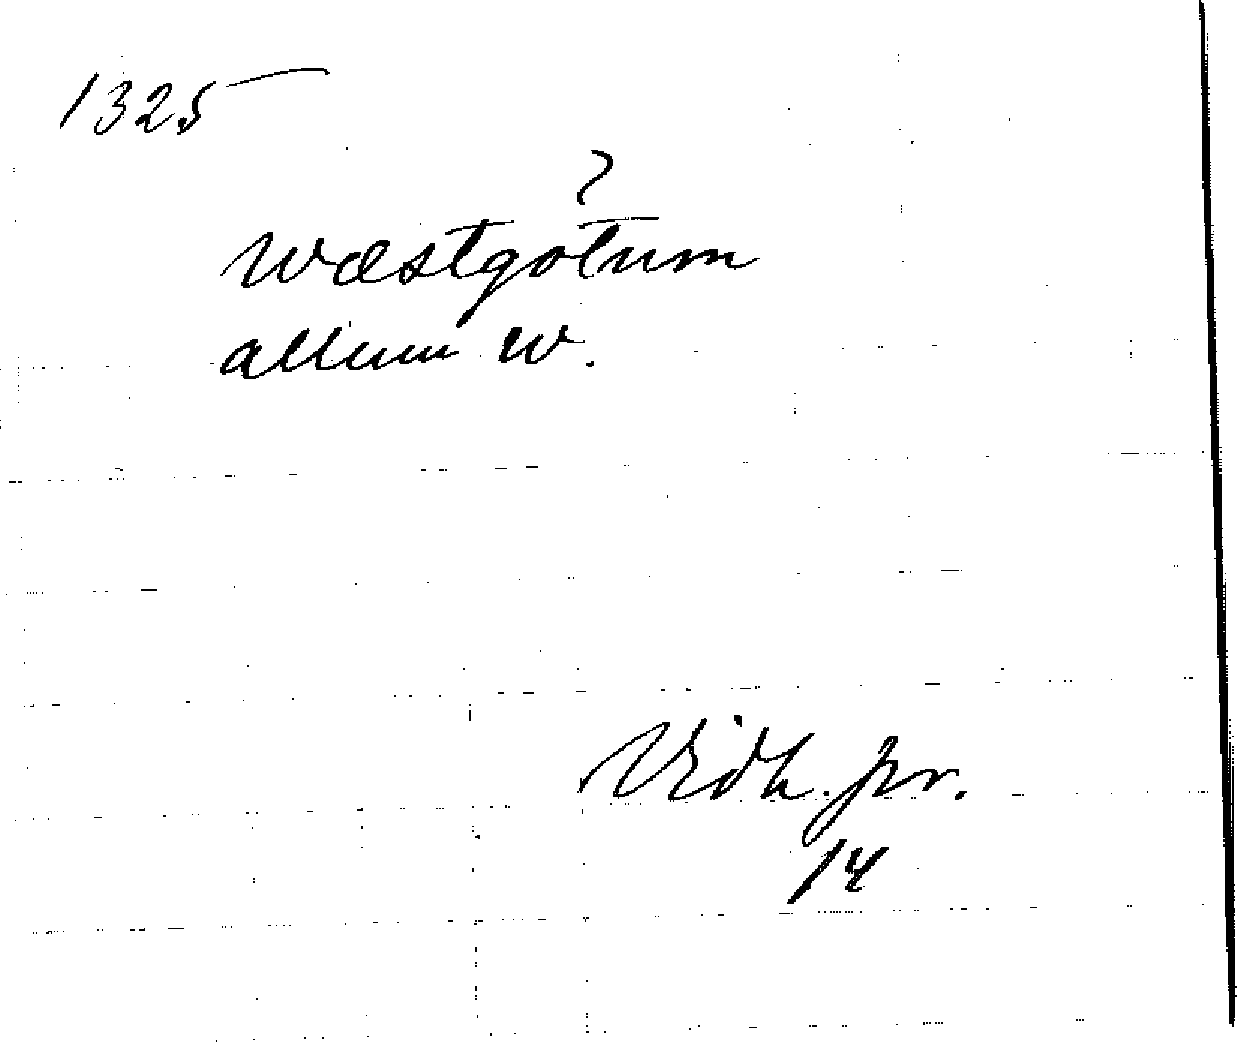 1325
?
wæstgötum
allum w.
Vidh. pr.
14